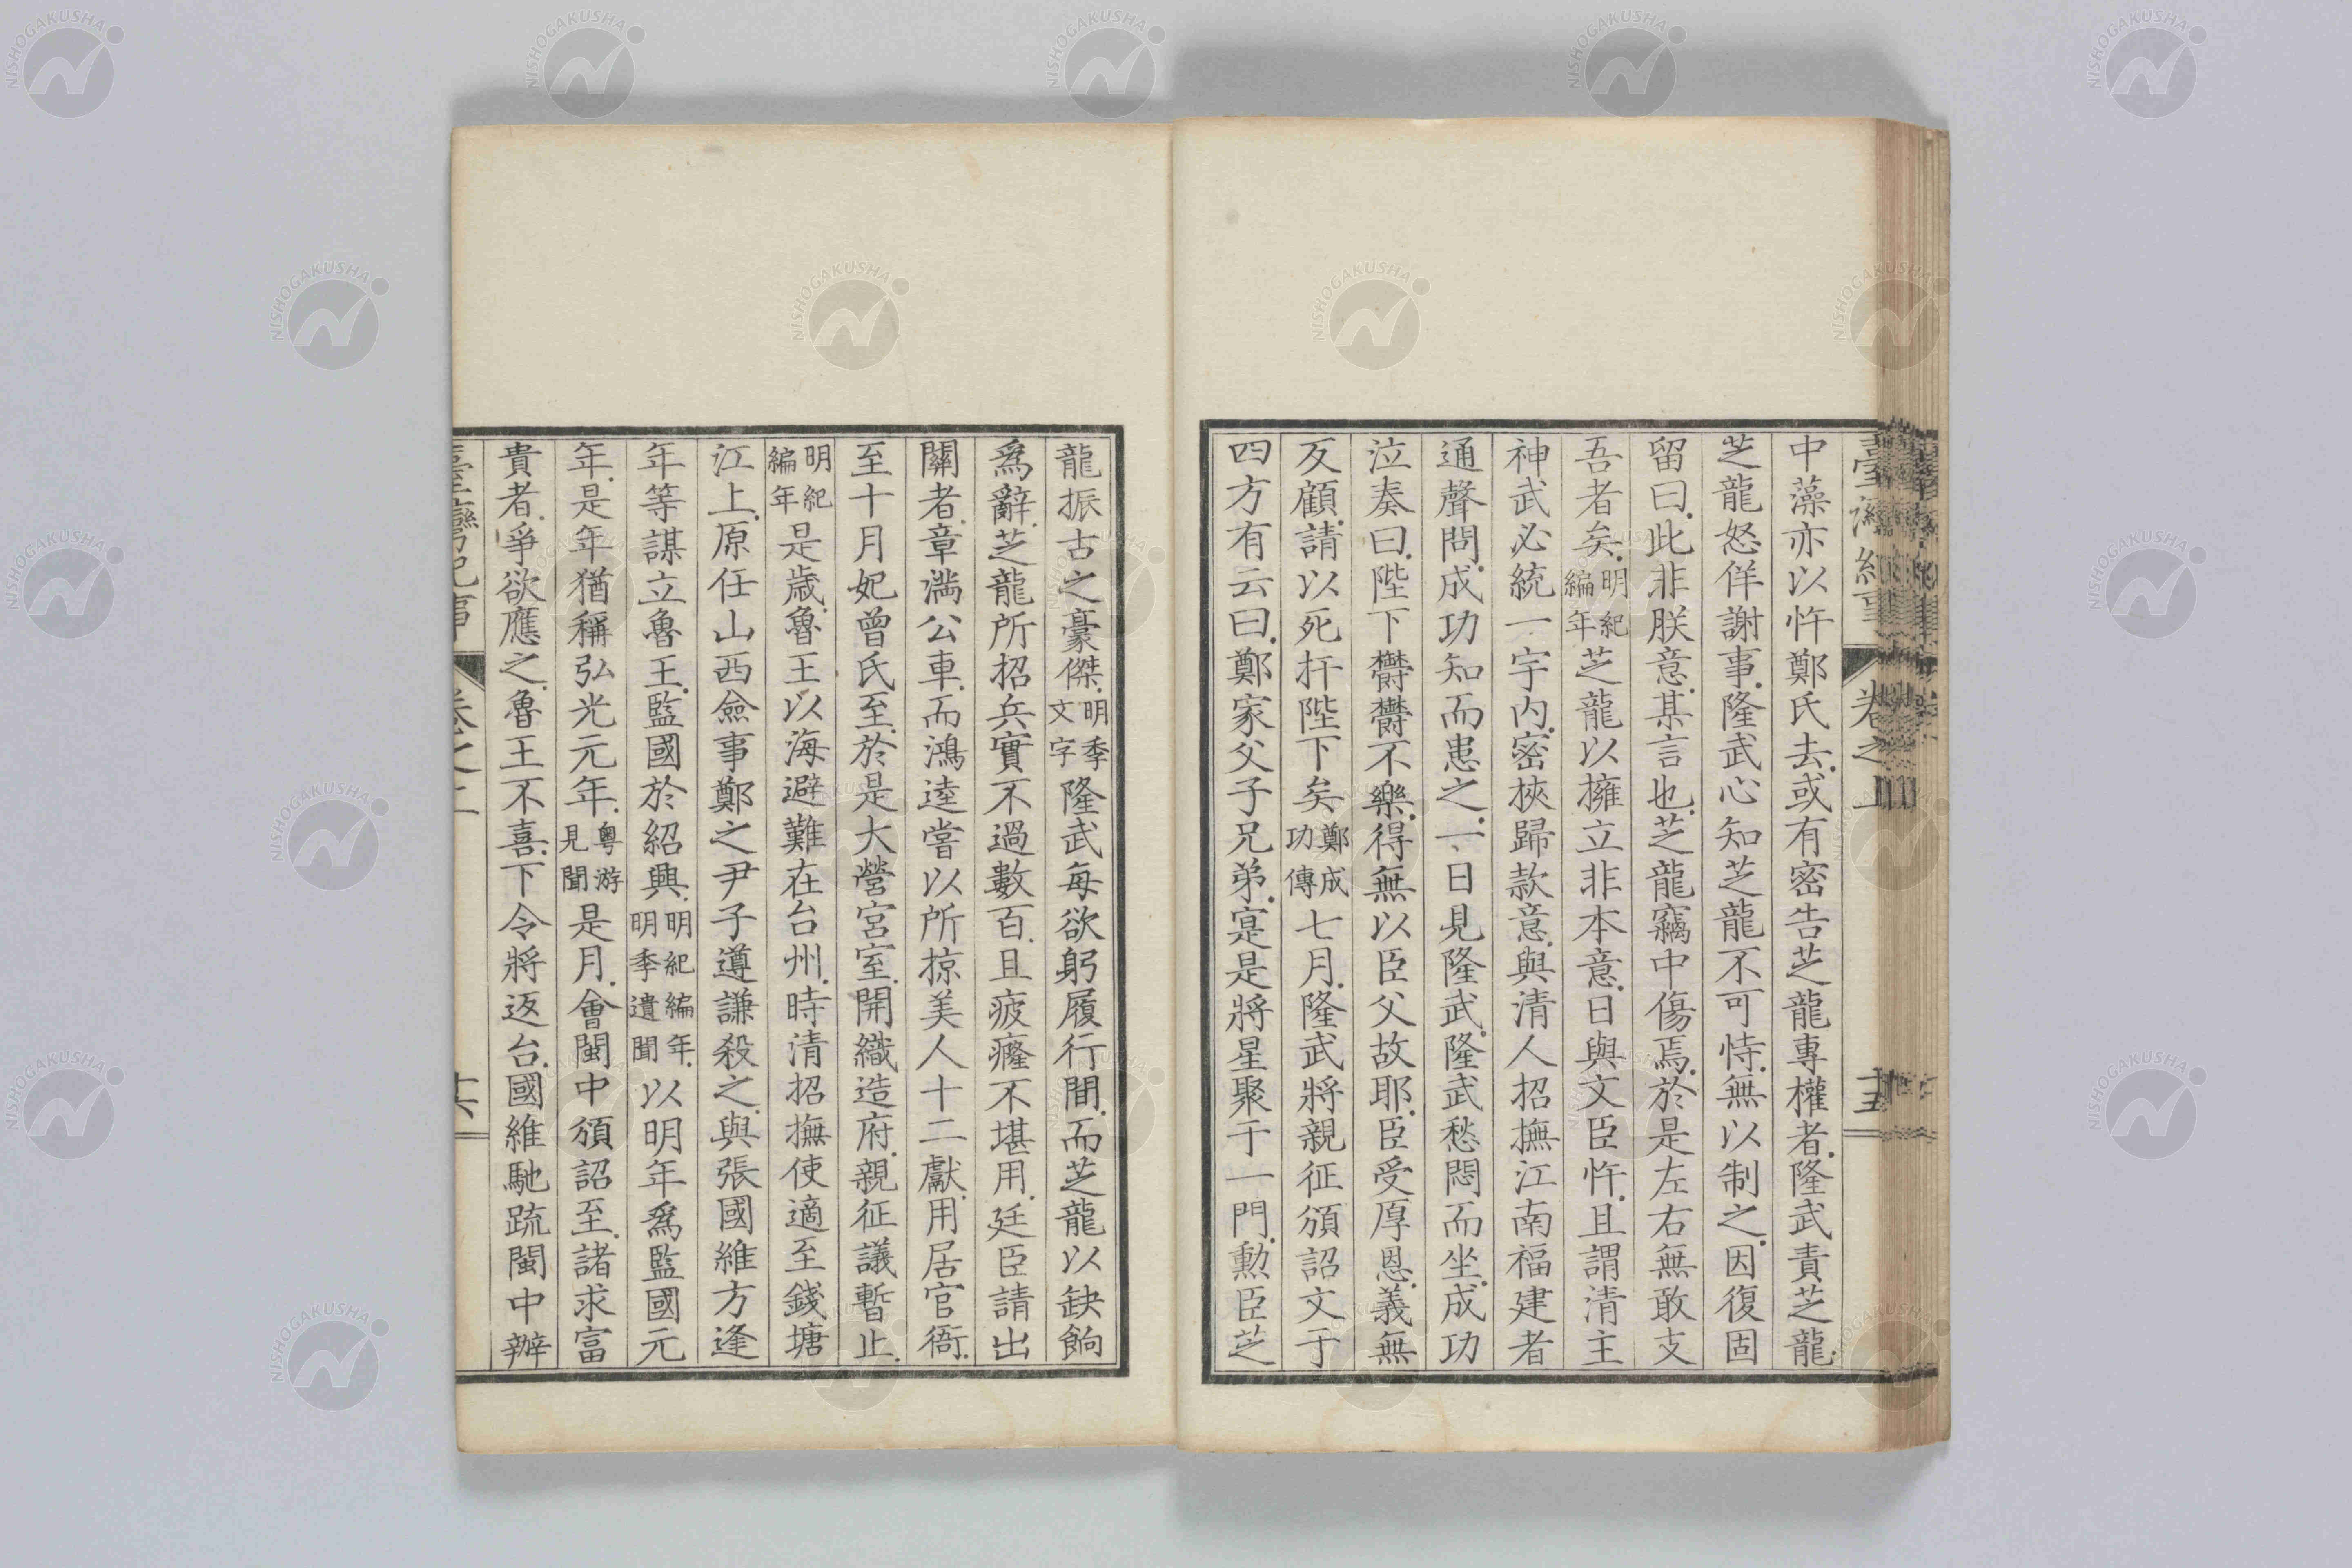 中藻亦以忤鄭氏去.或有密告芝龍專權者.隆武責芝龍.
芝龍怒佯謝事.隆武心知芝龍不可恃.無以制之.因復固
留曰.此非朕意.某言也.芝龍竊中傷焉.於是左右無敢支
吾者矣.明紀編年芝龍以擁立非本意.日與文臣忤.且謂清主
神武必統一宇內.密挾歸款意.與清人招撫江南福建者
通聲問.成功知而患之.一日見隆武.隆武愁悶而坐.成功
泣奏曰.陛下欝欝不樂.得無以臣父故耶.臣受厚恩.義無
反顧.請以死扞陛下矣鄭成功傳七月.隆武將親征頒詔文于
四方有云曰.鄭家父子兄弟.寔是將星聚于一門.勲臣芝
臺灣紀事
卷之
龍振古之豪傑.明季文字隆武每欲躬履行間.而芝龍以缺餉
爲辭.芝龍所招兵實不過數百.且疲癃不堪用.廷臣請出
關者.章滿公車.而鴻逵嘗以所掠美人十二獻.用居官衙.
至十月妃曾氏至.於是大營宮室.開織造府.親征議暫止.
明紀編年是歲.魯王以海避難在台州.時清招撫使適至錢塘
江上.原任山西僉事鄭之尹子遵謙殺之.與張國維方逢
年等謀立魯王.監國於紹興.明紀編年.明季遺聞以明年爲監國元
年.是年猶稱弘光元年.粤游見聞是月.會閩中頒詔至.諸求富
貴者.爭欲應之.魯王不喜.下令將返台.國維馳疏閩中辦
十六